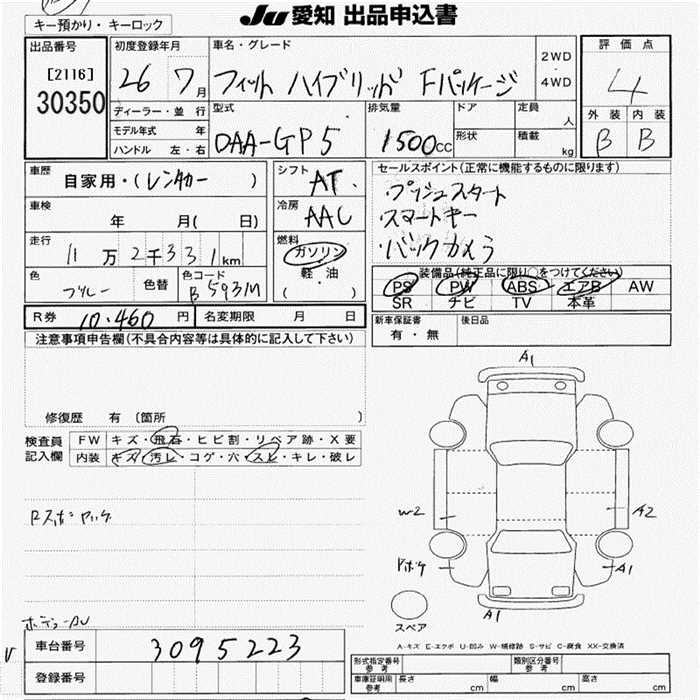 JU 愛知 出品申込書
キー預かり・キーロック
出品番号
[2116]
30350
初度登録年月
26 7月
ディーラー・並 行
モデル年式 年
ハンドル 左・右
車名・グレード
フィット ハイブリッド Fパッケージ
2WD
4WD
型式
DAA-GP5
排気量
1500cc
ドア
形状
定員
人
積載
kg
評価点
4
外装 内装
B B
車歴
自家用・(レンタカー )
車検
年 月( 日)
走行
11万2千331km
色
ブルー
色替
色コード
B593M
シフト
AT
冷房
AAC
燃料
ガソリン
軽・油
( )
セールスポイント(正常に機能するものに限ります)
・プッシュスタート
・スマートキー
・バックカメラ
装備品(純正品に限り○をつけてください)
PS PW ABS エアB AW
SR ナビ TV 本革
R券 10.460円 名変期限 月 日
新車保証書
有・無
後日品
注意事項申告欄(不具合内容等は具体的に記入して下さい)
修復歴 有 (箇所 )
検査員
記入欄
FW キズ・飛石・ヒビ割・リペア跡・X要
内装 キズ・汚レ・コゲ・穴・スレ・キレ・破レ
A1
W2
A2
A1
A1
スペア
A-キズ E-エクボ U-凹み W-補修跡 S-サビ C-腐食 XX-交換済
車台番号 3095223
登録番号
形式指定番号
参考
類別区分番号
参考
車庫証明用
参考
長さ cm 幅 cm 高さ cm